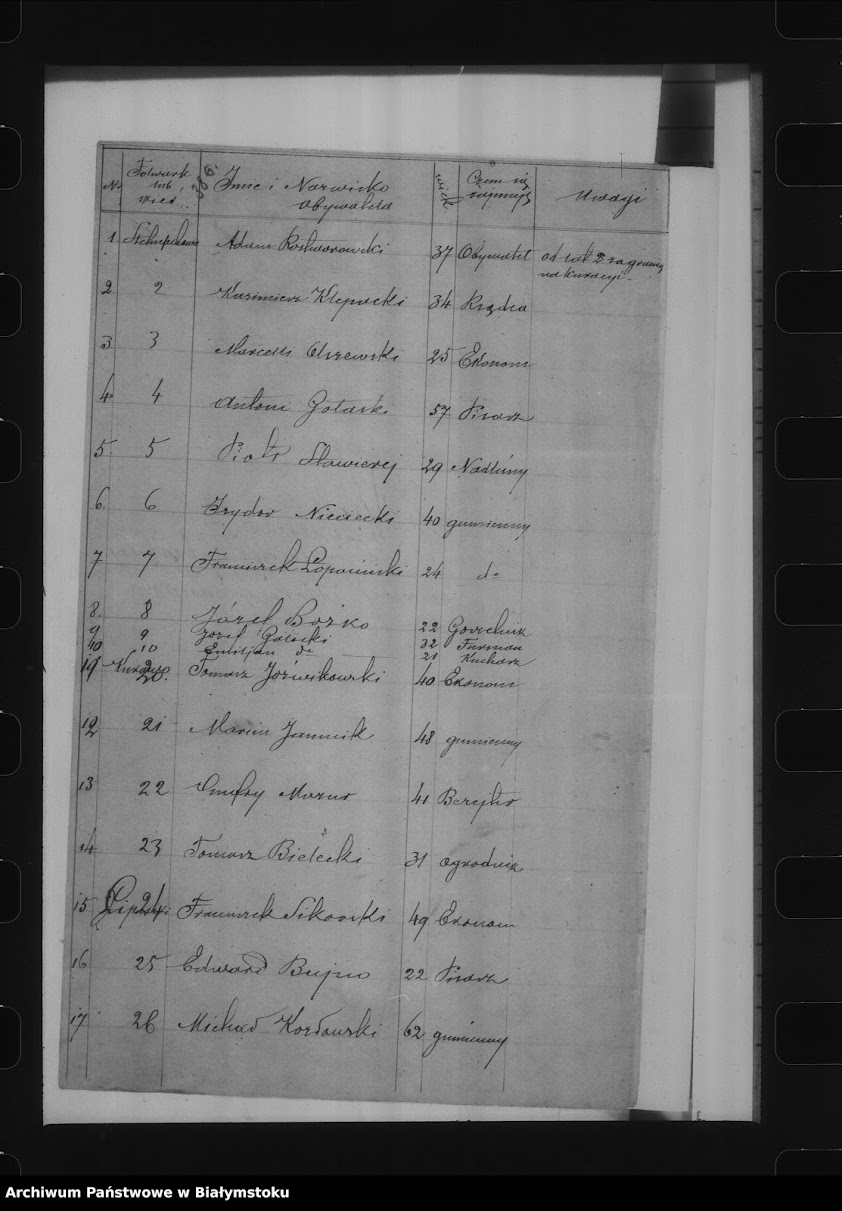 No Folwark lub wieś Imie i Nazwisko Obywatela wiek Czem się zajmuje Uwagi
1 Adam Rostworowski 37 Obywatel od lat 2 zagranicą
na kuracyi
2 2 Kazimierz Klepacki 34 Rządca
3 3 Marcelli Olszewski 25 Ekonom
4 4 Antoni 57 Pisarz
5 5 Piotr 29 Nadleśny
6 6 Izydor Niciecki 40 gumienny
7 7 Franciszek Łopaciński 24 do
8. 8 Józef Bożko 22 Gorzelnik
9 9 Józef 32 Furman
10 10 Emiljan do 21 Kucharz
20. Tomasz Jóźwikowski 40 Ekonom
12 21 Marcin 48 gumienny
13 22 Onufry 41
14 23 Tomasz Bielecki 31 ogrodnik
15 24 Franciszek Sikorski 49 Ekonom
16 25 Edward Bujno 22 Pisarz
17 26 Michał 62 gumienny
Archiwum Państwowe w Białymstoku